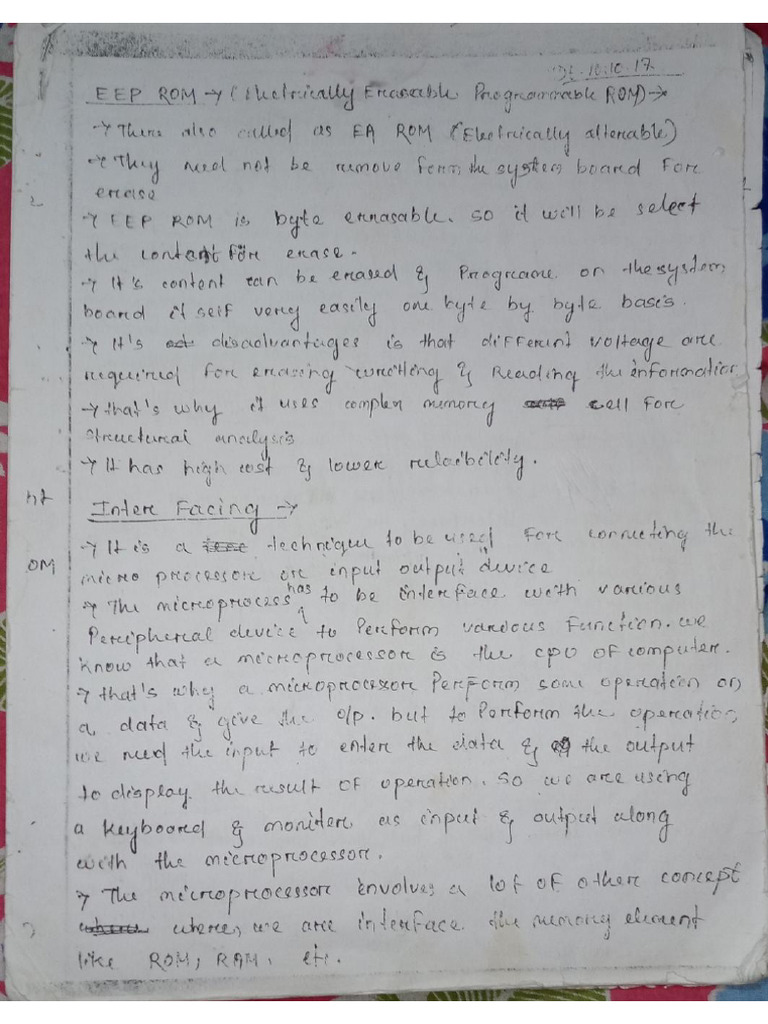 10.10.17
EEP ROM → (Electrically Erasable Programmable ROM) →
→ There also called as EA ROM (Electrically alterable)
→ They need not be remove form the system board For
erase
→ EEP ROM is byte errasable. so it will be select
the content for erase.
→ It's content can be erased & Programe on the system
board it self very easily one byte by byte basis.
→ It's disadvantages is that different voltage are
required for erasing writting & Reading the information
→ that's why it uses complex memory cell For
structural analysis
→ It has high cost & lower relaibility.
nt
Inter Facing →
→ It is a technique to be used For connecting the
OM
micro processor or input output device
→ The microprocess has to be interface with various
Peripheral device to Perform various Function. we
know that a microprocessor is the cpu of computer.
→ that's why a microprocessor Perform some operation on
a data & give the o/p. but to Perform the operation
we need the input to enter the data & the output
to display the result of operation. So we are using
a keyboard & moniter as input & output along
with the microprocessor.
→ The microprocessor involves a lot of other concept
where, we are interface the memory element
like ROM, RAM, etc.